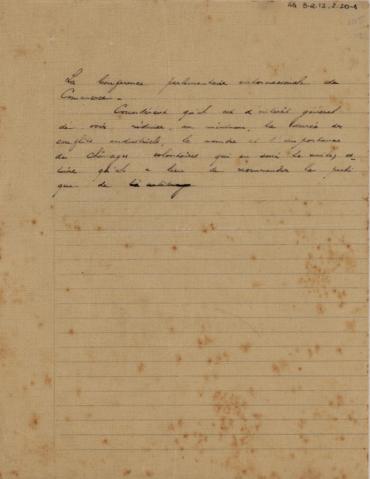 La Conference parlementaire internacionale de
Commerce.
Considérant qu'il est d'intérêt général
de voir réduire, au minimum, la durée des
conflits industriels, le nombre et l'importance
de chômages volontaires qui en sont le
qu'il a lieu de recommander la prati
que de